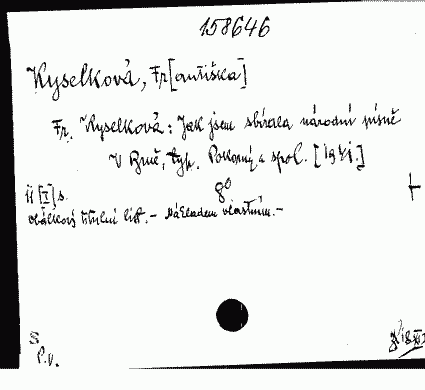 158646
Kyselková, Fr[antiška]
Fr. Kyselková: Jak jsem sbírala národní písně
V Brně, typ. Pokorný a spol. [19
11 [I] s. 8°
obálkový titulní list. — Nákladem vlastním. —
S
P.V.